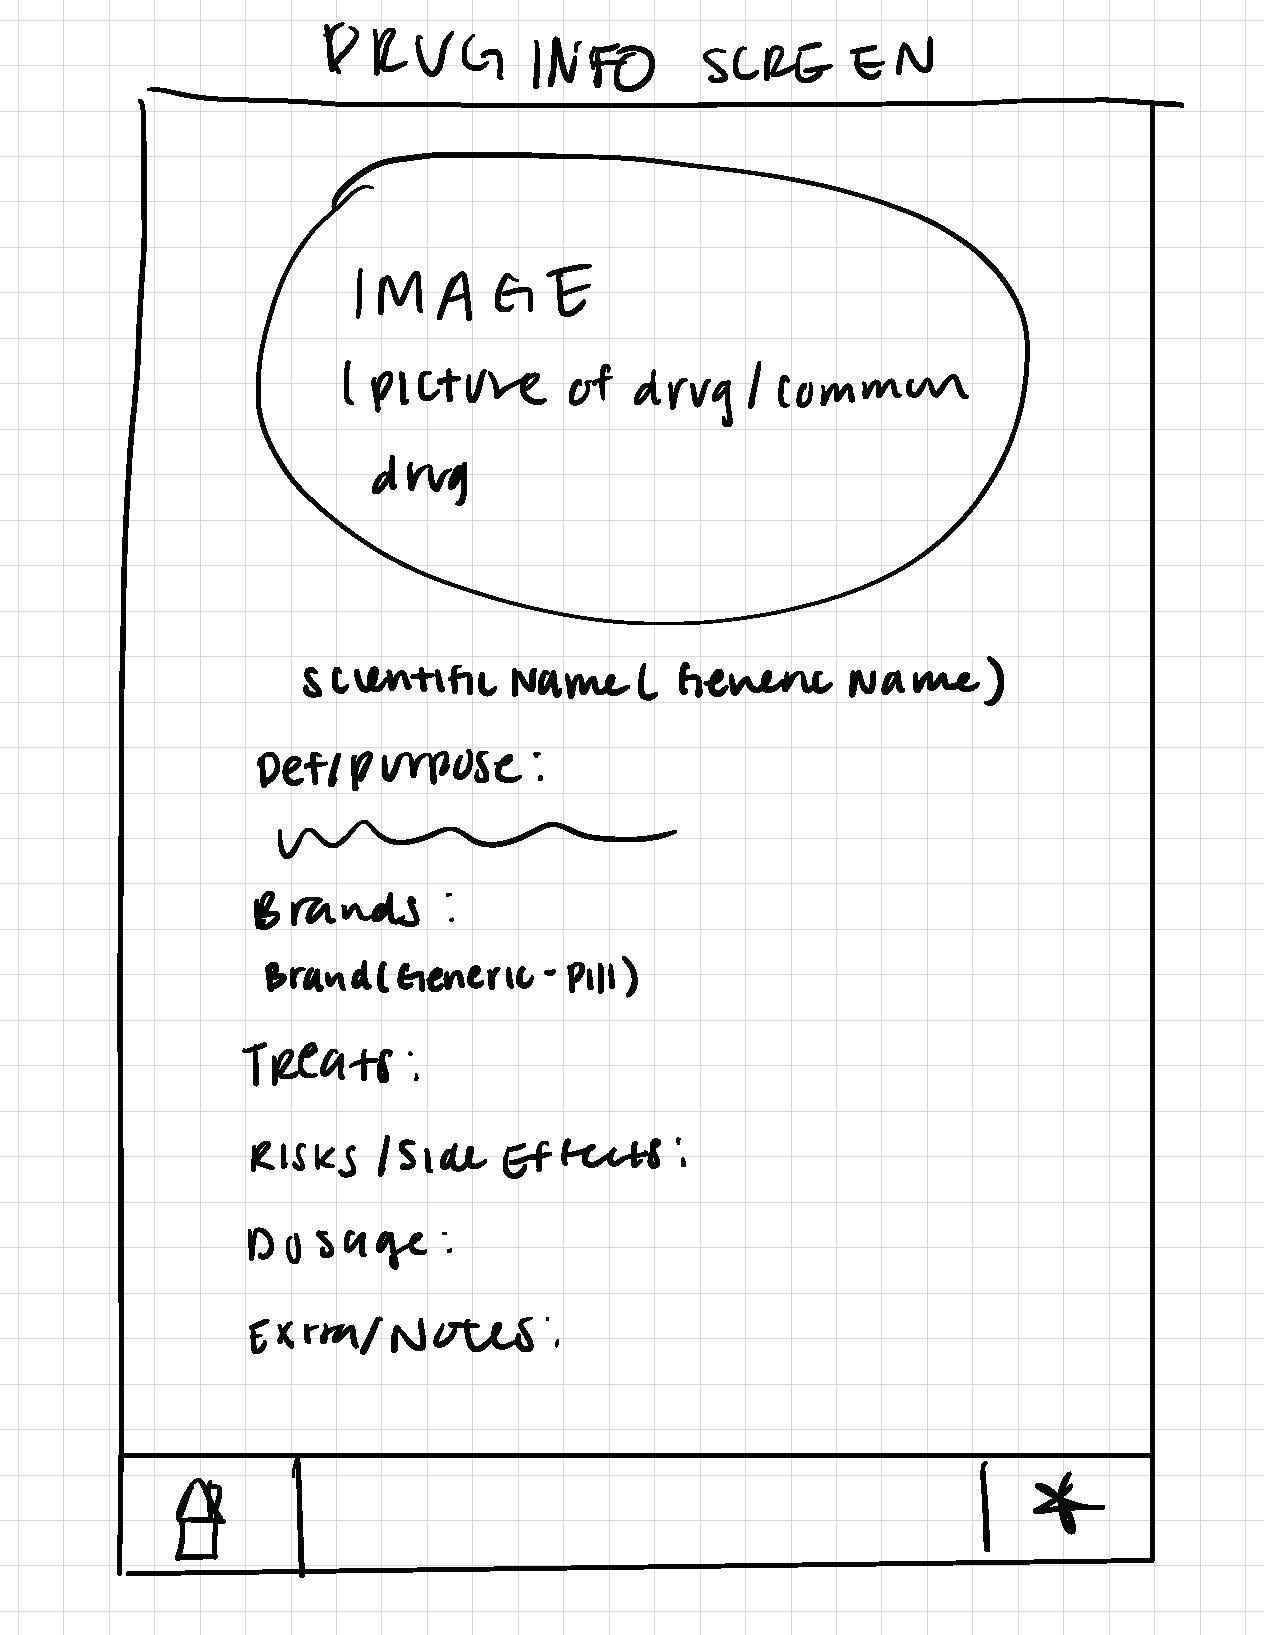 DRUG INFO SCREEN
IMAGE
(picture of drug/common
drug
Scientific Name (Generic Name)
Def/purpose:
Brands:
Brand(Generic-Pill)
Treats:
Risks/Side Effects:
Dosage:
Extra/Notes: